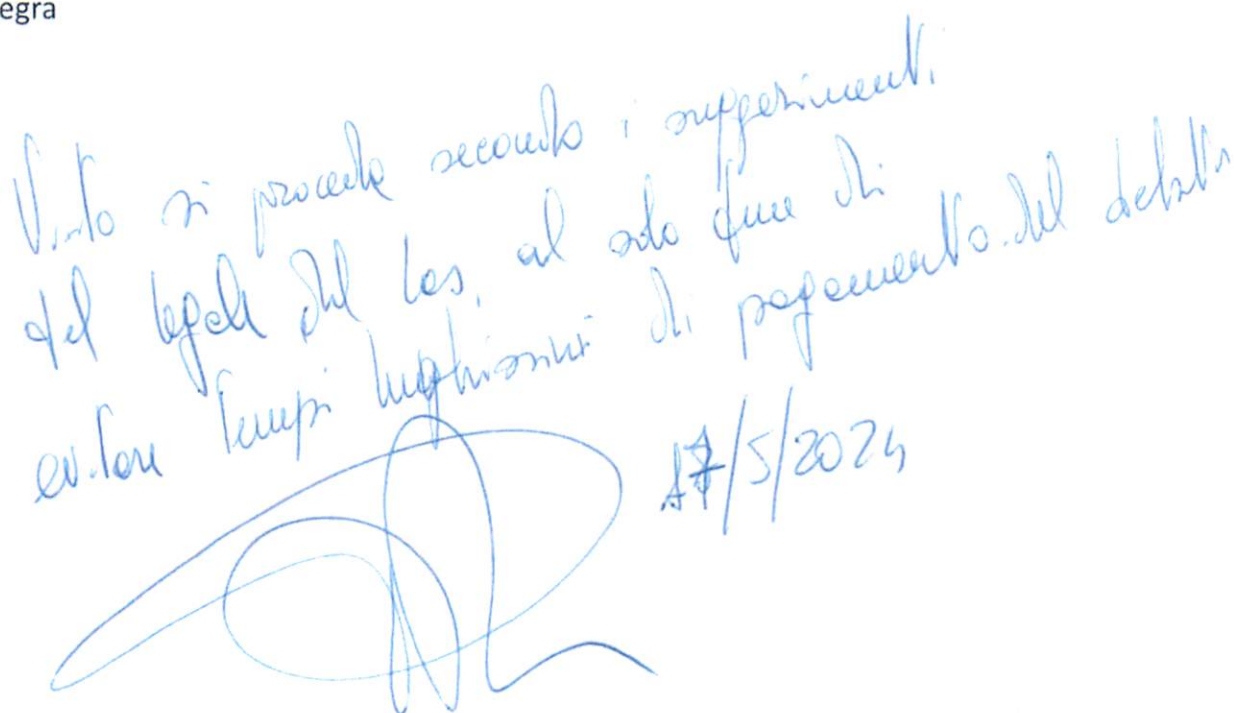 egra
Visto si proceda secondo i suggerimenti
del legale del Cas, al solo fine di
evitare tempi lunghissimi di pagamento del debito
17/5/2024